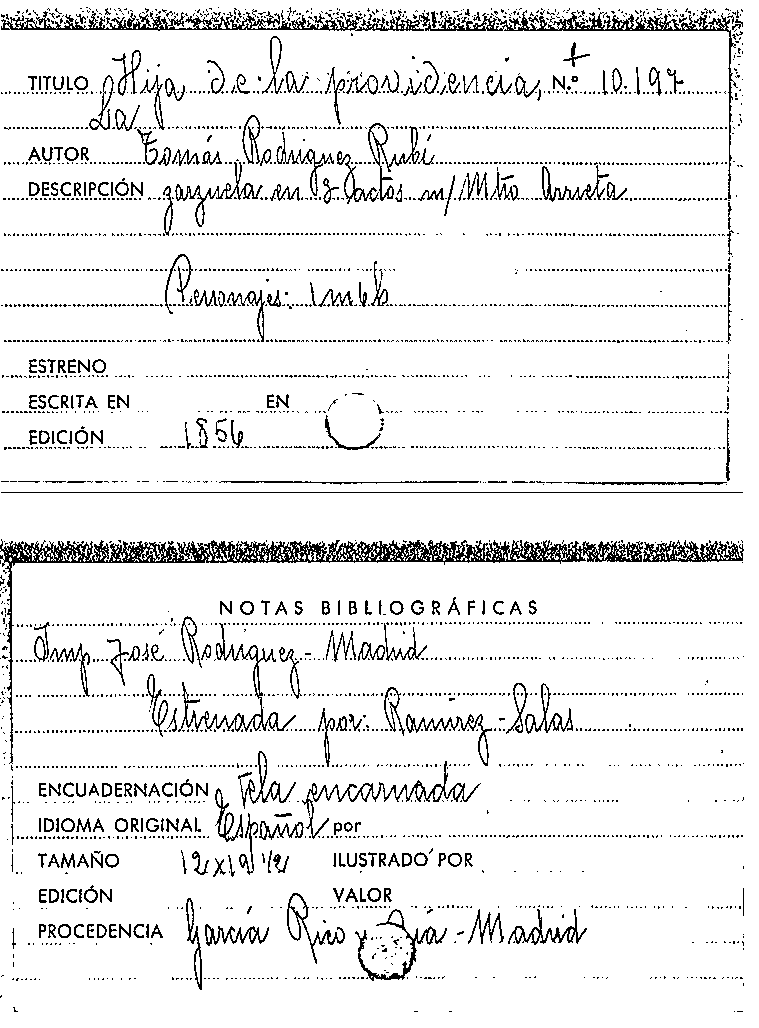 TITULO Hija de la providencia, N.º 10.197
La
AUTOR Tomás Rodriguez Rubí
DESCRIPCIÓN zarzuela en 3 actos m/ Mtro Arrieta
Personajes: 1m6h
ESTRENO
ESCRITA EN EN
EDICIÓN 1856
NOTAS BIBLIOGRÁFICAS
Imp. José Rodriguez - Madrid
Estrenada por: Ramírez - Salas
ENCUADERNACIÓN Tela encarnada
IDIOMA ORIGINAL Español por
TAMAÑO 12x19 1/2 ILUSTRADO POR
EDICIÓN VALOR
PROCEDENCIA García Rico y Cía - Madrid